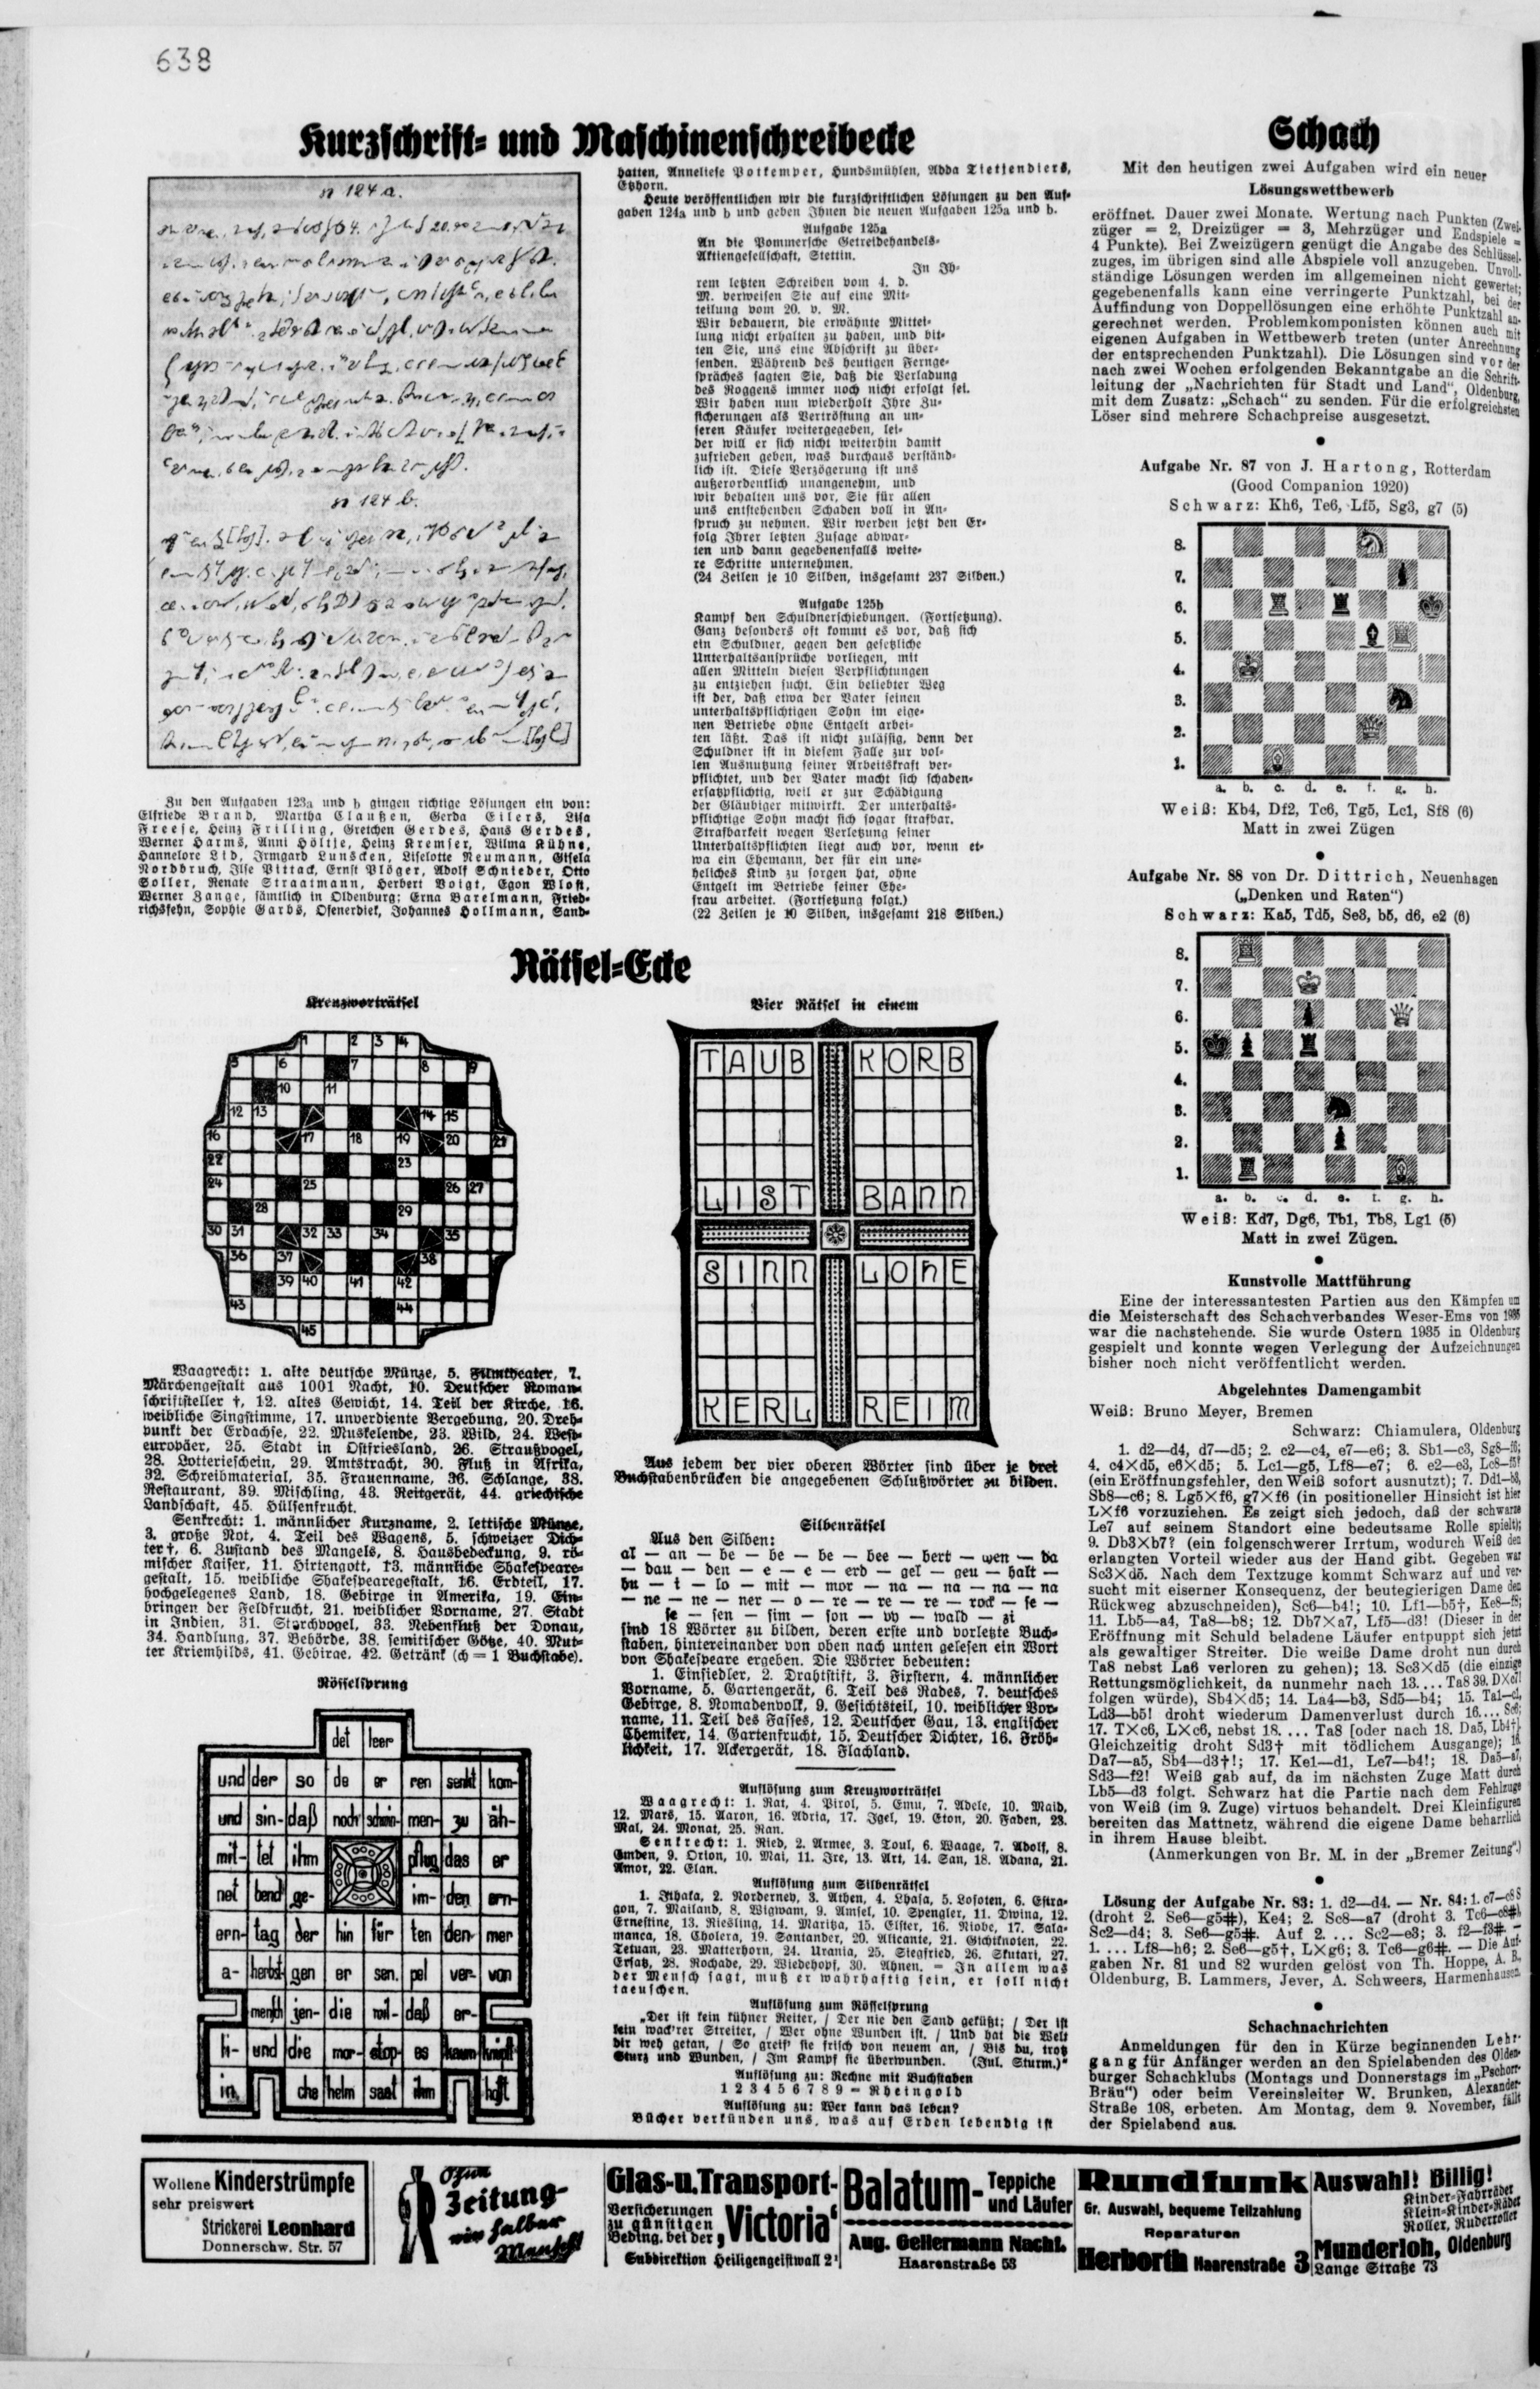 638
Kurzschrift= und Maschinenschreibecke
n 124 a.
n 124 b.
Zu den Aufgaben 123a und b gingen richtige Lösungen ein von:
Elfriede Brand, Martha Claußen, Gerda Eilers, Lisa
Freese, Heinz Frilling, Gretchen Gerdes, Hans Gerdes,
Werner Harms, Anni Höltje, Heinz Kremser, Wilma Kühne,
Hannelore Lid, Irmgard Lunscken, Liselotte Neumann, Gisela
Nordbruch, Ilse Pittack, Ernst Plöger, Adolf Schnieder, Otto
Soller, Renate Straatmann, Herbert Voigt, Egon Wlost,
Werner Zange, sämtlich in Oldenburg; Erna Barelmann, Fried=
richsfehn, Sophie Garbs, Ofenerdiek, Johannes Hollmann, Sand=
hatten, Anneliese Pottemper, Hundsmühlen, Adda Tietjendiers,
Etzhorn.
Heute veröffentlichen wir die kurzschriftlichen Lösungen zu den Auf=
gaben 124a und b und geben Ihnen die neuen Aufgaben 125a und b.
Aufgabe 125a
An die Pommersche Getreidehandels=
Aktiengesellschaft, Stettin.
In Ih=
rem letzten Schreiben vom 4. d.
M. verweisen Sie auf eine Mit=
teilung vom 20. v. M.
Wir bedauern, die erwähnte Mittei=
lung nicht erhalten zu haben, und bit=
ten Sie, uns eine Abschrift zu über=
senden. Während des heutigen Fernge=
spräches sagten Sie, daß die Verladung
des Roggens immer noch nicht erfolgt sei.
Wir haben nun wiederholt Ihre Zu=
sicherungen als Vertröstung an un=
seren Käufer weitergegeben, lei=
der will er sich nicht weiterhin damit
zufrieden geben, was durchaus verständ=
lich ist. Diese Verzögerung ist uns
außerordentlich unangenehm, und
wir behalten uns vor, Sie für allen
uns entstehenden Schaden voll in An=
spruch zu nehmen. Wir werden jetzt den Er=
folg Ihrer letzten Zusage abwar=
ten und dann gegebenenfalls weite=
re Schritte unternehmen.
(24 Zeilen je 10 Silben, insgesamt 237 Silben.)
Aufgabe 125b
Kampf den Schuldnerschiebungen. (Fortsetzung).
Ganz besonders oft kommt es vor, daß sich
ein Schuldner, gegen den gesetzliche
Unterhaltsansprüche vorliegen, mit
allen Mitteln diesen Verpflichtungen
zu entziehen sucht. Ein beliebter Weg
ist der, daß etwa der Vater seinen
unterhaltspflichtigen Sohn im eige=
nen Betriebe ohne Entgelt arbei=
ten läßt. Das ist nicht zulässig, denn der
Schuldner ist in diesem Falle zur vol=
len Ausnutzung seiner Arbeitskraft ver=
pflichtet, und der Vater macht sich schaden=
ersatzpflichtig, weil er zur Schädigung
der Gläubiger mitwirkt. Der unterhalts=
pflichtige Sohn macht sich sogar strafbar.
Strafbarkeit wegen Verletzung seiner
Unterhaltspflichten liegt auch vor, wenn et=
wa ein Ehemann, der für ein une=
heliches Kind zu sorgen hat, ohne
Entgelt im Betriebe seiner Ehe=
frau arbeitet. (Fortsetzung folgt.)
(22 Zeilen je 10 Silben, insgesamt 218 Silben.)
Rätsel=Ecke
Kreuzworträtsel
1 2 3 4
5 6 7 8 9
10 11
12 13 14 15
16 17 18 19 20 21
22 23
24 25 26 27
28 29
30 31 32 33 34 35
36 37 38
39 40 41 42
43 44
45
Waagrecht: 1. alte deutsche Münze, 5. Filmtheater, 7.
Märchengestalt aus 1001 Nacht, 10. Deutscher Roman=
schriftsteller †, 12. altes Gewicht, 14. Teil der Kirche, 16.
weibliche Singstimme, 17. unverdiente Vergebung, 20. Dreh=
punkt der Erdachse, 22. Muskelende, 23. Wild, 24. West=
europäer, 25. Stadt in Ostfriesland, 26. Straußvogel,
28. Lotterieschein, 29. Amtstracht, 30. Fluß in Afrika,
32. Schreibmaterial, 35. Frauenname, 36. Schlange, 38.
Restaurant, 39. Mischling, 43. Reitgerät, 44. griechische
Landschaft, 45. Hülsenfrucht.
Senkrecht: 1. männlicher Kurzname, 2. lettische Münze,
3. große Not, 4. Teil des Wagens, 5. schweizer Dich=
ter †, 6. Zustand des Mangels, 8. Hausbedeckung, 9. rö=
mischer Kaiser, 11. Hirtengott, 13. männliche Shakespeare=
gestalt, 15. weibliche Shakespearegestalt, 16. Erdteil, 17.
hochgelegenes Land, 18. Gebirge in Amerika, 19. Ein=
bringen der Feldfrucht, 21. weiblicher Vorname, 27. Stadt
in Indien, 31. Starchvogel, 33. Nebenfluß der Donau,
34. Handlung, 37. Behörde, 38. semitischer Götze, 40. Mut=
ter Kriemhilds, 41. Gebirge, 42. Getränk (ch = 1 Buchstabe).
Rösselsprung
det leer
und der so de er ren senkt kom-
und sin- daß noch schwin- men- zu äh-
mit- tet ihm pflug das er
net bend ge- im- den ern-
ern- tag der hin für ten den- mer
a- herbst- gen er sen. pel ver- von
mensch jen- die wil- daß er-
li- und die mor- stop- es kaum knüpft
in che helm saat ihm hofft
Vier Rätsel in einem
TAUB KORB
LIST BANN
SINN LOHE
KERL REIM
Aus jedem der vier oberen Wörter sind über je drei
Buchstabenbrücken die angegebenen Schlußwörter zu bilden.
Silbenrätsel
Aus den Silben:
al — an — be — be — be — bee — bert — wen — da
— dau — den — e — e — erd — gel — geu — halt —
hu — i — lo — mit — mor — na — na — na — na
— ne — ne — ner — o — re — re — re — rock — se —
se — sen — sim — son — vv — wald — zi
sind 18 Wörter zu bilden, deren erste und vorletzte Buch=
staben, hintereinander von oben nach unten gelesen ein Wort
von Shakespeare ergeben. Die Wörter bedeuten:
1. Einsiedler, 2. Drahtstift, 3. Fixstern, 4. männlicher
Vorname, 5. Gartengerät, 6. Teil des Rades, 7. deutsches
Gebirge, 8. Nomadenvolk, 9. Gesichtsteil, 10. weiblicher Vor=
name, 11. Teil des Fasses, 12. Deutscher Gau, 13. englischer
Chemiker, 14. Gartenfrucht, 15. Deutscher Dichter, 16. Fröh=
lichkeit, 17. Ackergerät, 18. Flachland.
Auflösung zum Kreuzworträtsel
Waagrecht: 1. Rat, 4. Pirol, 5. Emu, 7. Adele, 10. Maid,
12. Mars, 15. Aaron, 16. Adria, 17. Igel, 19. Eton, 20. Faden, 23.
Mal, 24. Monat, 25. Ran.
Senkrecht: 1. Ried, 2. Armee, 3. Toul, 6. Waage, 7. Adolf, 8.
Emden, 9. Orion, 10. Mai, 11. Ire, 13. Art, 14. San, 18. Adana, 21.
Amor, 22. Elan.
Auflösung zum Silbenrätsel
1. Ithaka, 2. Norderney, 3. Athen, 4. Lhasa, 5. Lofoten, 6. Estra=
gon, 7. Mailand, 8. Wigwam, 9. Amsel, 10. Spengler, 11. Dwina, 12.
Ernestine, 13. Riesling, 14. Maritza, 15. Elster, 16. Niobe, 17. Sala=
manca, 18. Cholera, 19. Santander, 20. Alicante, 21. Gichtknoten, 22.
Tetuan, 23. Matterhorn, 24. Urania, 25. Siegfried, 26. Skutari, 27.
Ersatz, 28. Rochade, 29. Wiedehopf, 30. Ahnen. = In allem was
der Mensch sagt, muß er wahrhaftig sein, er soll nicht
taeuschen.
Auflösung zum Rösselsprung
„Der ist kein kühner Reiter, / Der nie den Sand geküßt; / Der ist
kein wack'rer Streiter, / Wer ohne Wunden ist. / Und hat die Welt
dir weh getan, / So greif' sie frisch von neuem an, / Bis du, trotz
Sturz und Wunden, / Im Kampf sie überwunden. (Jul. Sturm.)"
Auflösung zu: Rechne mit Buchstaben
1 2 3 4 5 6 7 8 9 = Rheingold
Auflösung zu: Wer kann das lesen?
Bücher verkünden uns, was auf Erden lebendig ist
Schach
Mit den heutigen zwei Aufgaben wird ein neuer
Lösungswettbewerb
eröffnet. Dauer zwei Monate. Wertung nach Punkten (Zwei-
züger = 2, Dreizüger = 3, Mehrzüger und Endspiele =
4 Punkte). Bei Zweizügern genügt die Angabe des Schlüssel-
zuges, im übrigen sind alle Abspiele voll anzugeben. Unvoll-
ständige Lösungen werden im allgemeinen nicht gewertet;
gegebenenfalls kann eine verringerte Punktzahl, bei der
Auffindung von Doppellösungen eine erhöhte Punktzahl an-
gerechnet werden. Problemkomponisten können auch mit
eigenen Aufgaben in Wettbewerb treten (unter Anrechnung
der entsprechenden Punktzahl). Die Lösungen sind vor der
nach zwei Wochen erfolgenden Bekanntgabe an die Schrift-
leitung der „Nachrichten für Stadt und Land", Oldenburg,
mit dem Zusatz: „Schach" zu senden. Für die erfolgreichsten
Löser sind mehrere Schachpreise ausgesetzt.
Aufgabe Nr. 87 von J. Hartong, Rotterdam
(Good Companion 1920)
Schwarz: Kh6, Te6, Lf5, Sg3, g7 (5)
8.
7.
6.
5.
4.
3.
2.
1.
a. b. c. d. e. f. g. h.
Weiß: Kb4, Df2, Tc6, Tg5, Lc1, Sf8 (6)
Matt in zwei Zügen
Aufgabe Nr. 88 von Dr. Dittrich, Neuenhagen
(„Denken und Raten")
Schwarz: Ka5, Td5, Se3, b5, d6, e2 (6)
8.
7.
6.
5.
4.
3.
2.
1.
a. b. c. d. e. f. g. h.
Weiß: Kd7, Dg6, Tb1, Tb8, Lg1 (5)
Matt in zwei Zügen.
Kunstvolle Mattführung
Eine der interessantesten Partien aus den Kämpfen um
die Meisterschaft des Schachverbandes Weser-Ems von 1935
war die nachstehende. Sie wurde Ostern 1935 in Oldenburg
gespielt und konnte wegen Verlegung der Aufzeichnungen
bisher noch nicht veröffentlicht werden.
Abgelehntes Damengambit
Weiß: Bruno Meyer, Bremen
Schwarz: Chiamulera, Oldenburg
1. d2—d4, d7—d5; 2. c2—c4, e7—e6; 3. Sb1—c3, Sg8—f6;
4. c4×d5, e6×d5; 5. Lc1—g5, Lf8—e7; 6. e2—e3, Lc8—f5?
(ein Eröffnungsfehler, den Weiß sofort ausnutzt); 7. Dd1—b3,
Sb8—c6; 8. Lg5×f6, g7×f6 (in positioneller Hinsicht ist hier
L×f6 vorzuziehen. Es zeigt sich jedoch, daß der schwarze
Le7 auf seinem Standort eine bedeutsame Rolle spielt);
9. Db3×b7? (ein folgenschwerer Irrtum, wodurch Weiß den
erlangten Vorteil wieder aus der Hand gibt. Gegeben war
Sc3×d5. Nach dem Textzuge kommt Schwarz auf und ver-
sucht mit eiserner Konsequenz, der beutegierigen Dame den
Rückweg abzuschneiden), Sc6—b4!; 10. Lf1—b5†, Ke8—f8;
11. Lb5—a4, Ta8—b8; 12. Db7×a7, Lf5—d3! (Dieser in der
Eröffnung mit Schuld beladene Läufer entpuppt sich jetzt
als gewaltiger Streiter. Die weiße Dame droht nun durch
Ta8 nebst La6 verloren zu gehen); 13. Sc3×d5 (die einzige
Rettungsmöglichkeit, da nunmehr nach 13.... Ta8 39. D×c7!
folgen würde), Sb4×d5; 14. La4—b3, Sd5—b4; 15. Ta1—c1,
Ld3—b5! droht wiederum Damenverlust durch 16.... Sc6;
17. T×c6, L×c6, nebst 18. ... Ta8 [oder nach 18. Da5, Lb4†].
Gleichzeitig droht Sd3† mit tödlichem Ausgange); 16.
Da7—a5, Sb4—d3†!; 17. Ke1—d1, Le7—b4!; 18. Da5—a7,
Sd3—f2! Weiß gab auf, da im nächsten Zuge Matt durch
Lb5—d3 folgt. Schwarz hat die Partie nach dem Fehlzuge
von Weiß (im 9. Zuge) virtuos behandelt. Drei Kleinfiguren
bereiten das Mattnetz, während die eigene Dame beharrlich
in ihrem Hause bleibt.
(Anmerkungen von Br. M. in der „Bremer Zeitung".)
Lösung der Aufgabe Nr. 83: 1. d2—d4. — Nr. 84: 1. c7—c8 S
(droht 2. Se6—g5#), Ke4; 2. Sc8—a7 (droht 3. Tc6—c8#)
Sc2—d4; 3. Se6—g5#. Auf 2. ... Sc2—e3; 3. f2—f3#. —
1. ... Lf8—h6; 2. Se6—g5†, L×g6; 3. Tc6—g6#. — Die Auf-
gaben Nr. 81 und 82 wurden gelöst von Th. Hoppe, A. B.,
Oldenburg, B. Lammers, Jever, A. Schweers, Harmenhausen.
Schachnachrichten
Anmeldungen für den in Kürze beginnenden Lehr-
gang für Anfänger werden an den Spielabenden des Olden-
burger Schachklubs (Montags und Donnerstags im „Pschorr-
Bräu") oder beim Vereinsleiter W. Brunken, Alexander-
Straße 108, erbeten. Am Montag, dem 9. November, fällt
der Spielabend aus.
Wollene Kinderstrümpfe
sehr preiswert
Strickerei Leonhard
Donnerschw. Str. 57
Ohne
Zeitung-
ein halber
Mensch!
Glas-u.Transport-
Versicherungen
zu günstigen
Beding. bei der „Victoria"
Subdirektion Heiligengeistwall 2
Balatum-Teppiche
und Läufer
Aug. Gellermann Nachf.
Haarenstraße 53
Rundfunk
Gr. Auswahl, bequeme Teilzahlung
Reparaturen
Herborth Haarenstraße 3
Auswahl! Billig!
Kinder-Fahrräder
Klein-Kinder-Räder
Roller, Ruderroller
Munderloh, Oldenburg
Lange Straße 73